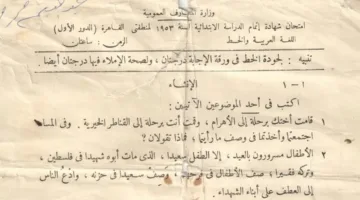 وزارة المعارف العمومية
امتحان شهادة إتمام الدراسة الابتدائية لسنة ١٩٥٣ لمنطقتى القاهرة (الدور الأول)
اللغة العربية والخط الزمن : ساعتان
تنبيه : لجودة الخط فى ورقة الإجابة درجتان ، ولصحة الإملاء فيها درجتان أيضا .
١ — ١
الإنشاء
اكتب فى أحد الموضوعين الآتيين :
١ قامت أختك برحلة إلى الأهرام ، وقمت أنت برحلة إلى القناطر الخيرية . وفى المساء
اجتمعتما وأخذتما فى وصف ما رأيتما ، فماذا تقولان ؟
٢ الأطفال مسرورون بالعيد ، إلا الطفل سعيدا ، الذى مات أبوه شهيدا فى فلسطين ،
وتركه فقيرا ، صف الأطفال فى فرحهم ، وصف سعيدا فى حزنه ، وادع الناس
إلى العطف على أبناء الشهداء .